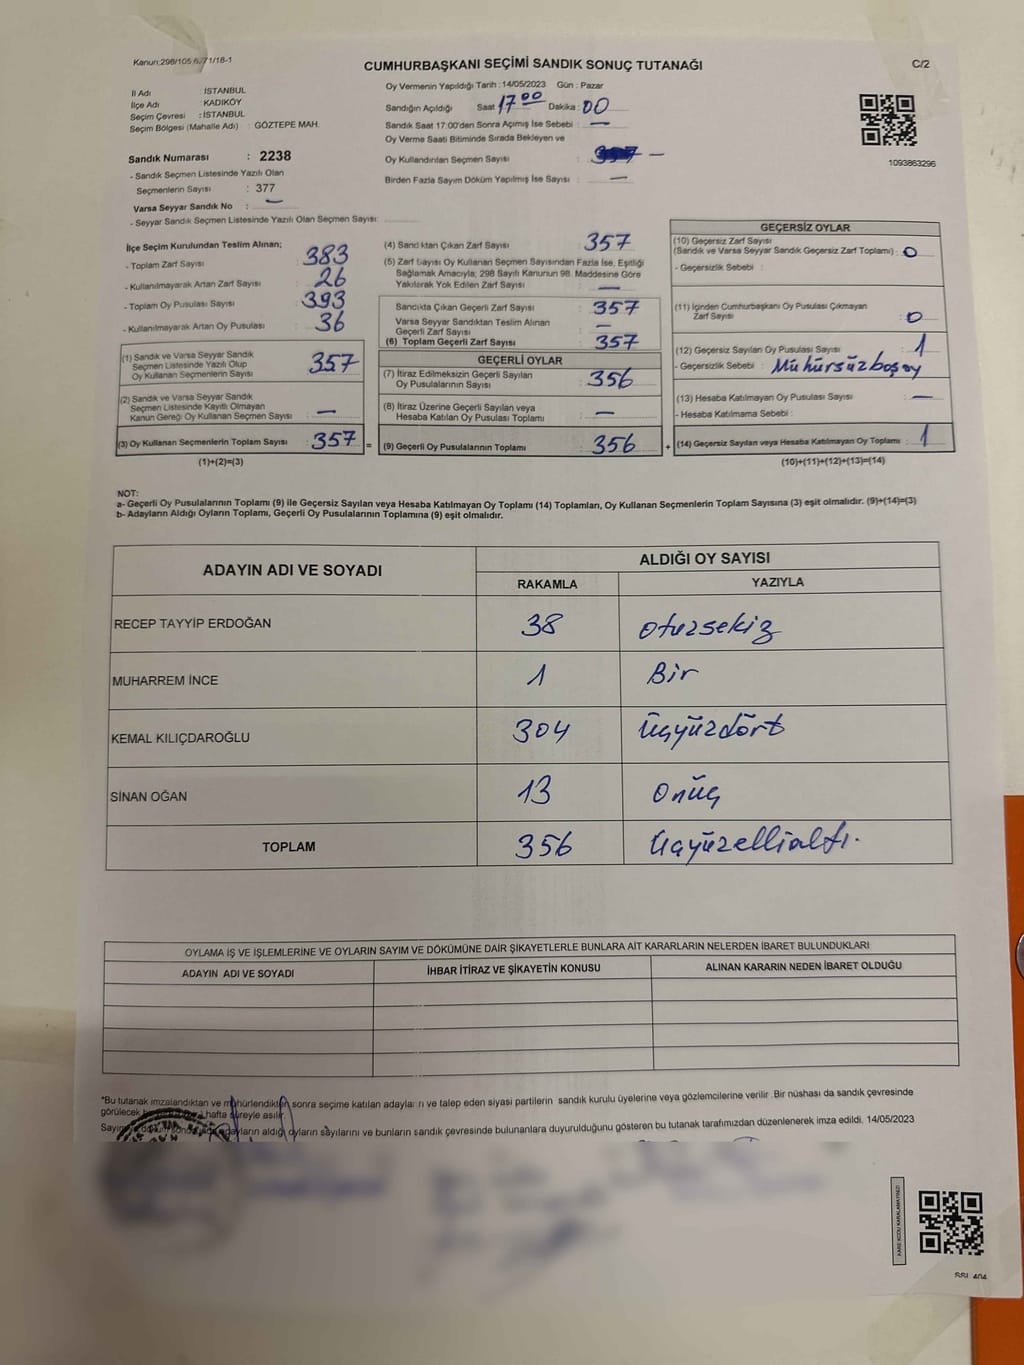 Kanun:298/105,6,71/18-1
CUMHURBAŞKANI SEÇİMİ SANDIK SONUÇ TUTANAĞI
C/2
İl Adı : İSTANBUL
İlçe Adı : KADIKÖY
Seçim Çevresi : İSTANBUL
Seçim Bölgesi (Mahalle Adı) : GÖZTEPE MAH.
Sandık Numarası : 2238
- Sandık Seçmen Listesinde Yazılı Olan
Seçmenlerin Sayısı : 377
Varsa Seyyar Sandık No : —
- Seyyar Sandık Seçmen Listesinde Yazılı Olan Seçmen Sayısı:
Oy Vermenin Yapıldığı Tarih :14/05/2023 Gün : Pazar
Sandığın Açıldığı Saat 17 00 Dakika : 00
Sandık Saat 17:00'den Sonra Açımış İse Sebebi : —
Oy Verme Saati Bitiminde Sırada Bekleyen ve
Oy Kullandırılan Seçmen Sayısı : —
Birden Fazla Sayım Döküm Yapılmış İse Sayısı : —
1093863296
İlçe Seçim Kurulundan Teslim Alınan;
- Toplam Zarf Sayısı : 383
- Kullanılmayarak Artan Zarf Sayısı : 26
- Toplam Oy Pusulası Sayısı : 393
- Kullanılmayarak Artan Oy Pusulası : 36
(1) Sandık ve Varsa Seyyar Sandık
Seçmen Listesinde Yazılı Olup
Oy Kullanan Seçmenlerin Sayısı : 357
(2) Sandık ve Varsa Seyyar Sandık
Seçmen Listesinde Kayıtlı Olmayan
Kanun Gereği Oy Kullanan Seçmen Sayısı : —
(3) Oy Kullanan Seçmenlerin Toplam Sayısı : 357 =
(1)+(2)=(3)
(4) Sandıktan Çıkan Zarf Sayısı : 357
(5) Zarf Sayısı Oy Kullanan Seçmen Sayısından Fazla İse, Eşitliği
Sağlamak Amacıyla; 298 Sayılı Kanunun 98. Maddesine Göre
Yakılarak Yok Edilen Zarf Sayısı : —
Sandıkta Çıkan Geçerli Zarf Sayısı : 357
Varsa Seyyar Sandıktan Teslim Alınan
Geçerli Zarf Sayısı : —
(6) Toplam Geçerli Zarf Sayısı : 357
GEÇERLİ OYLAR
(7) İtiraz Edilmeksizin Geçerli Sayılan
Oy Pusulalarının Sayısı : 356
(8) İtiraz Üzerine Geçerli Sayılan veya
Hesaba Katılan Oy Pusulası Toplamı : —
(9) Geçerli Oy Pusulalarının Toplamı : 356 +
GEÇERSİZ OYLAR
(10) Geçersiz Zarf Sayısı
(Sandık ve Varsa Seyyar Sandık Geçersiz Zarf Toplamı) : 0
- Geçersizlik Sebebi :
(11) İçinden Cumhurbaşkanı Oy Pusulası Çıkmayan
Zarf Sayısı : 0
(12) Geçersiz Sayılan Oy Pusulası Sayısı : 1
- Geçersizlik Sebebi : Mühürsüz boş oy
(13) Hesaba Katılmayan Oy Pusulası Sayısı : —
- Hesaba Katılmama Sebebi :
(14) Geçersiz Sayılan veya Hesaba Katılmayan Oy Toplamı : 1
(10)+(11)+(12)+(13)=(14)
NOT:
a- Geçerli Oy Pusulalarının Toplamı (9) ile Geçersiz Sayılan veya Hesaba Katılmayan Oy Toplamı (14) Toplamları, Oy Kullanan Seçmenlerin Toplam Sayısına (3) eşit olmalıdır. (9)+(14)=(3)
b- Adayların Aldığı Oyların Toplamı, Geçerli Oy Pusulalarının Toplamına (9) eşit olmalıdır.
ADAYIN ADI VE SOYADI ALDIĞI OY SAYISI
RAKAMLA YAZIYLA
RECEP TAYYİP ERDOĞAN 38 otuzsekiz
MUHARREM İNCE 1 Bir
KEMAL KILIÇDAROĞLU 304 Üçyüzdört
SİNAN OĞAN 13 onüç
TOPLAM 356 Üçyüzellialtı.
OYLAMA İŞ VE İŞLEMLERİNE VE OYLARIN SAYIM VE DÖKÜMÜNE DAİR ŞİKAYETLERLE BUNLARA AİT KARARLARIN NELERDEN İBARET BULUNDUKLARI
ADAYIN ADI VE SOYADI İHBAR İTİRAZ VE ŞİKAYETİN KONUSU ALINAN KARARIN NEDEN İBARET OLDUĞU
*Bu tutanak imzalandıktan ve mühürlendikten sonra seçime katılan adayların ve talep eden siyasi partilerin sandık kurulu üyelerine veya gözlemcilerine verilir .Bir nüshası da sandık çevresinde
görülecek hafta süreyle asılır.
adayların aldığı oyların sayılarını ve bunların sandık çevresinde bulunanlara duyurulduğunu gösteren bu tutanak tarafımızdan düzenlenerek imza edildi. 14/05/2023